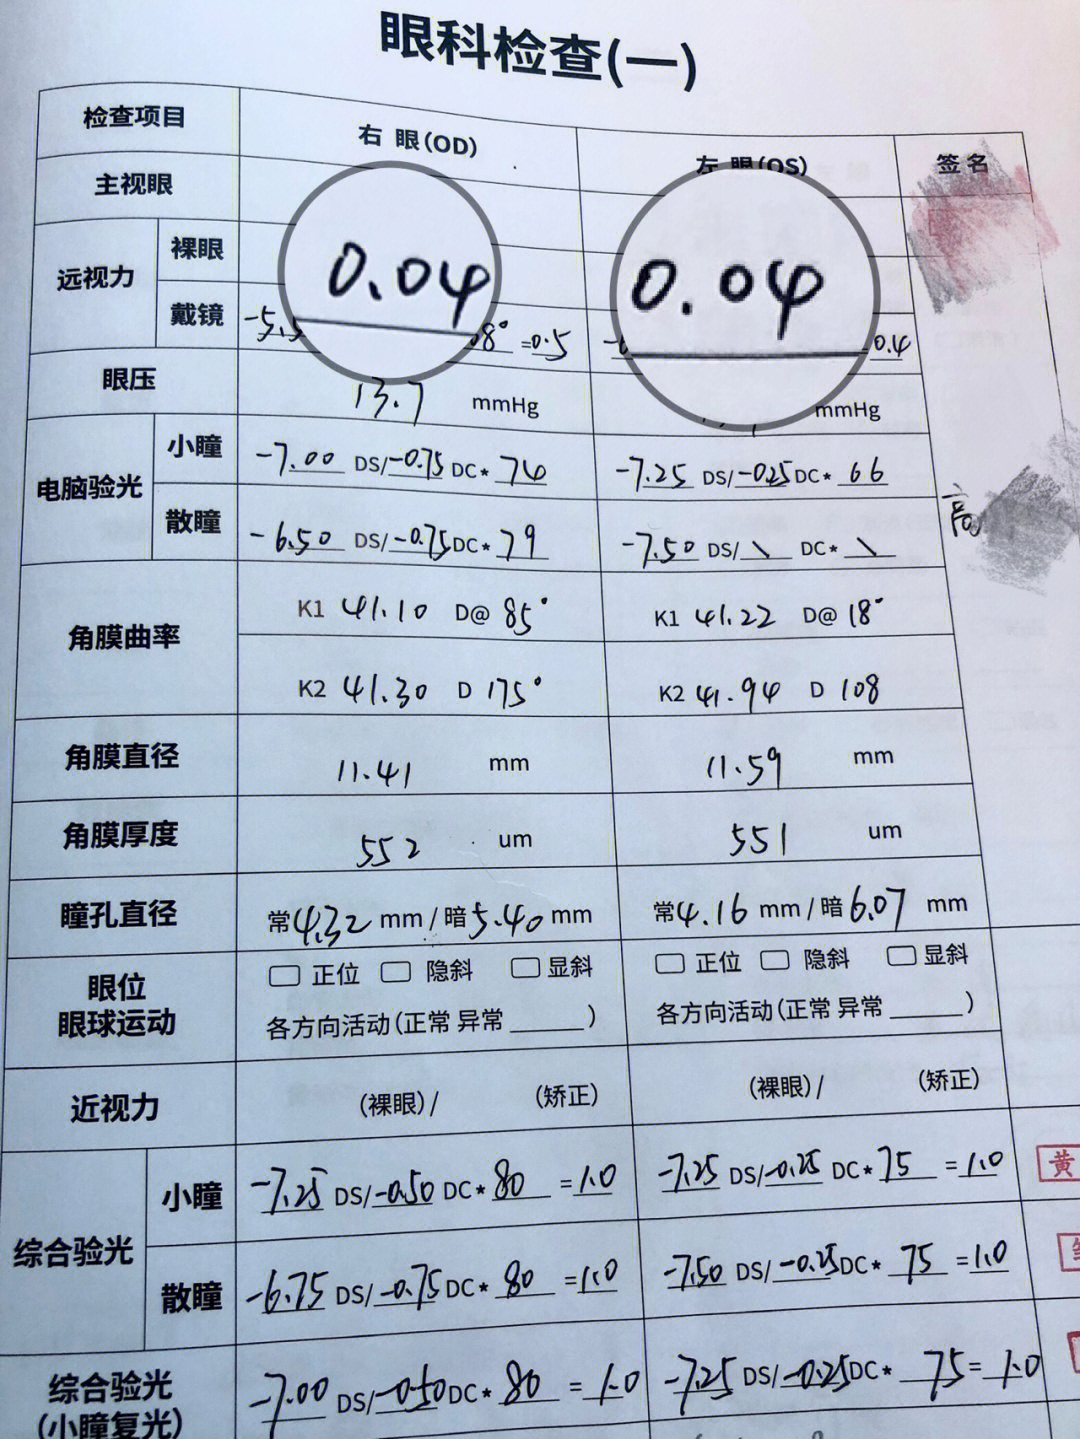 眼科检查(一)
检查项目 右 眼(OD) 左 眼(OS) 签名
主视眼
远视力 裸眼 0.04 0.04
戴镜 -5.5 08° =0.5 0.4
眼压 13.7 mmHg mmHg
电脑验光 小瞳 -7.00 DS/-0.75 DC* 74 -7.25 DS/-0.25 DC* 66
散瞳 -6.50 DS/-0.75 DC* 79 -7.50 DS/ \ DC* \
角膜曲率 K1 41.10 D@ 85° K1 41.22 D@ 18°
K2 41.30 D 175° K2 41.94 D 108
角膜直径 11.41 mm 11.59 mm
角膜厚度 552 um 551 um
瞳孔直径 常4.32 mm / 暗5.40 mm 常4.16 mm / 暗6.07 mm
眼位 正位 隐斜 显斜 正位 隐斜 显斜
眼球运动 各方向活动(正常 异常______) 各方向活动(正常 异常______)
近视力 (裸眼)/ (矫正) (裸眼)/ (矫正)
综合验光 小瞳 -7.25 DS/-0.50 DC* 80 =1.0 -7.25 DS/-0.25 DC* 75 =1.0 黄
散瞳 -6.75 DS/-0.75 DC* 80 =1.0 -7.50 DS/-0.25 DC* 75 =1.0
综合验光 -7.00 DS/-0.50 DC* 80 =1.0 -7.25 DS/-0.25 DC* 75 =1.0
(小瞳复光)